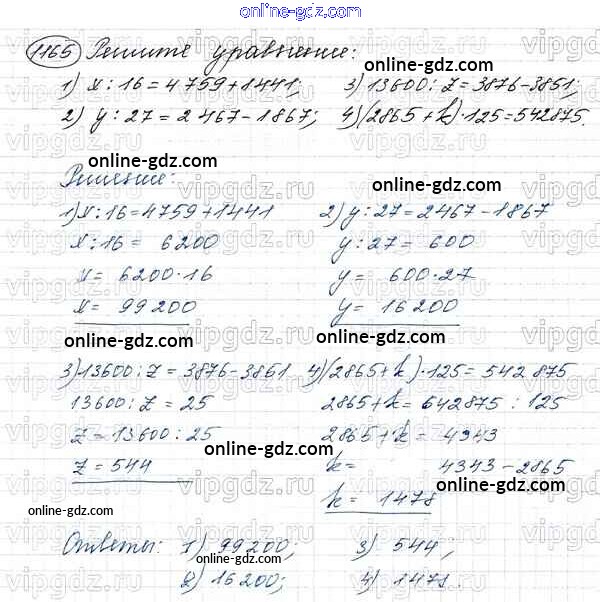 online-gdz.com
1165 Решите уравнение:
1) x : 16 = 4 759 + 1 441; 3) 13600 : z = 3876 - 3851;
2) y : 27 = 2 467 - 1 867; 4) (2865 + k) · 125 = 542875.
online-gdz.com
Решение:
online-gdz.com
1) x : 16 = 4759 + 1441
x : 16 = 6200
x = 6200 · 16
x = 99 200
2) y : 27 = 2467 - 1867
y : 27 = 600
y = 600 · 27
y = 16 200
online-gdz.com
online-gdz.com
3) 13600 : z = 3876 - 3851
13600 : z = 25
z = 13600 : 25
z = 544
4) (2865 + k) · 125 = 542 875
2865 + k = 642875 : 125
2865 + k = 4343
k = 4343 - 2865
k = 1478
online-gdz.com
online-gdz.com
online-gdz.com
Ответы: 1) 99 200; 3) 544;
2) 16 200; 4) 1478.
online-gdz.com
vipgdz.ru